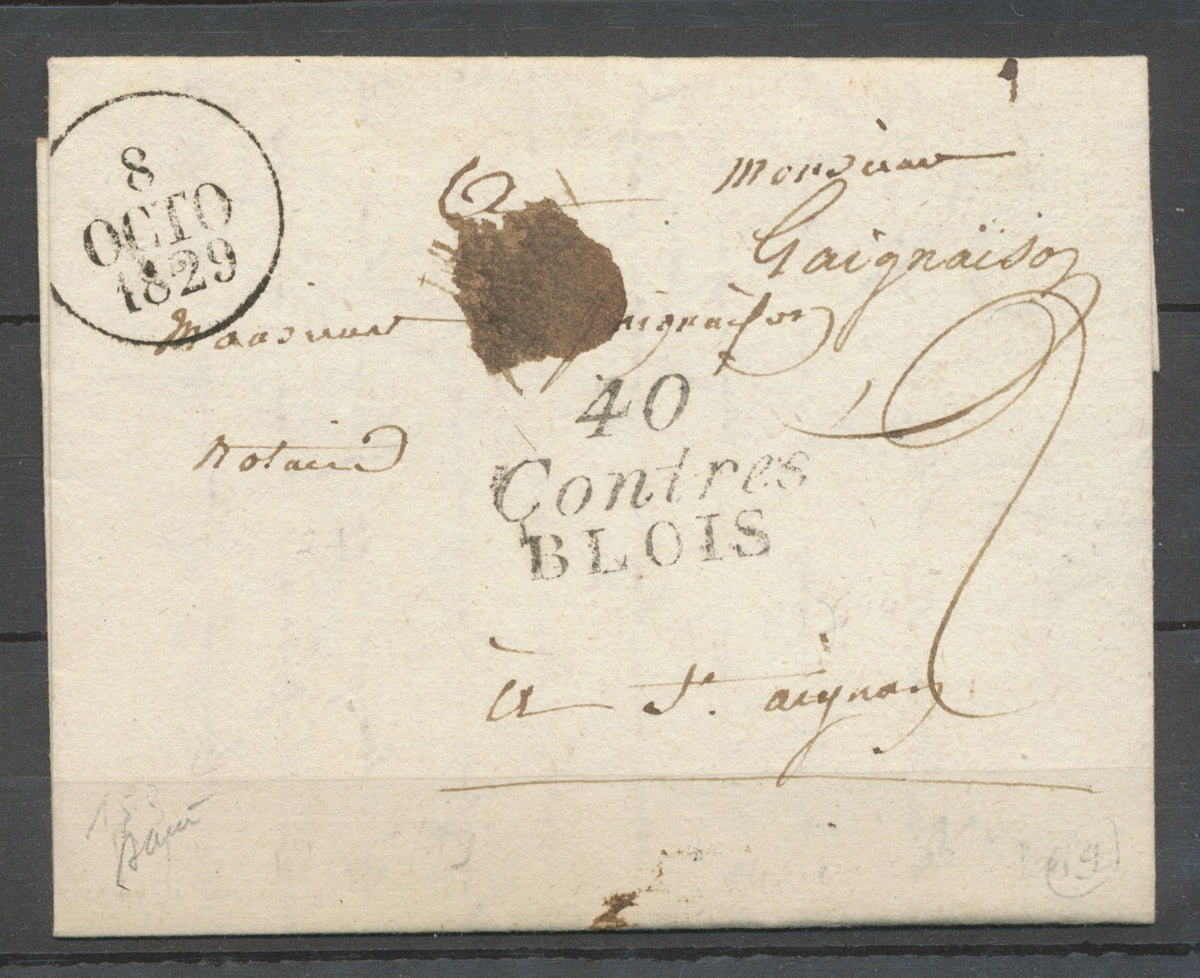 8
OCTO
1829
Monsieur
Gaignaison
Monsieur
Notaire
40
Contres
BLOIS
à St. aignan